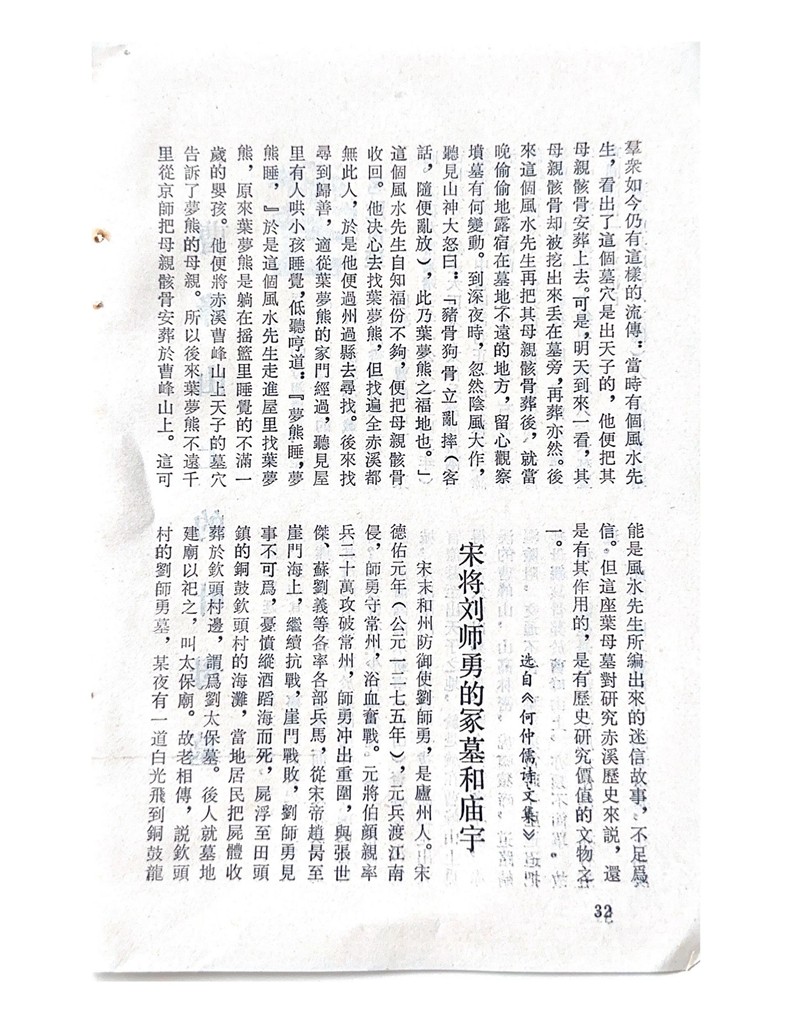 羣衆如今仍有這樣的流傳：當時有個風水先
生，看出了這個墓穴是出天子的，他便把其
母親骸骨安葬上去。可是，明天到來一看，其
母親骸骨却被挖出來丢在墓旁，再葬亦然。後
來這個風水先生再把其母親骸骨葬後，就當
晚偷偷地露宿在墓地不遠的地方，留心觀察
墳墓有何變動。到深夜時，忽然陰風大作，
聽見山神大怒曰：「豬骨狗骨立亂摔（客
話，隨便亂放），此乃葉夢熊之福地也。」
這個風水先生自知福份不夠，便把母親骸骨
收回。他决心去找葉夢熊，但找遍全赤溪都
無此人，於是他便過州過縣去尋找。後來找
尋到歸善，適從葉夢熊的家門經過，聽見屋
里有人哄小孩睡覺，低聽哼道：『夢熊睡，夢
熊睡，』於是這個風水先生走進屋里找葉夢
熊，原來葉夢熊是躺在摇籃里睡覺的不滿一
歲的嬰孩。他便將赤溪曹峰山上天子的墓穴
告訴了夢熊的母親。所以後來葉夢熊不遠千
里從京師把母親骸骨安葬於曹峰山上。這可
能是風水先生所編出來的迷信故事，不足爲
信。但這座葉母墓對研究赤溪歷史來說，還
是有其作用的，是有歷史研究價值的文物之
一。
选自《何仲儒诗文集》
宋将刘师勇的冢墓和庙宇
宋末和州防御使劉師勇，是廬州人。宋
德佑元年（公元一二七五年），元兵渡江南
侵，師勇守常州，浴血奮戰。元將伯顔親率
兵二十萬攻破常州，師勇冲出重圍，與張世
傑、蘇劉義等各率各部兵馬，從宋帝趙昺至
崖門海上，繼續抗戰，崖門戰敗，劉師勇見
事不可爲，憂憤縱酒蹈海而死，屍浮至田頭
鎮的銅鼓欽頭村的海灘，當地居民把屍體收
葬於欽頭村邊，謂爲劉太保墓。後人就墓地
建廟以祀之，叫太保廟。故老相傳，説欽頭
村的劉師勇墓，某夜有一道白光飛到銅鼓龍
32